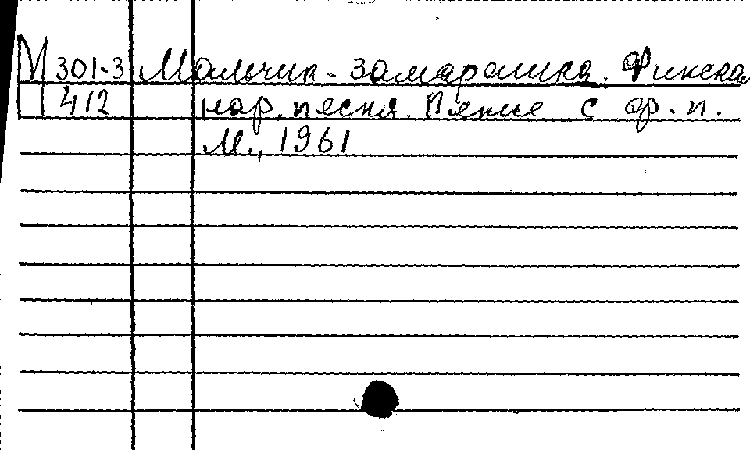 М 301-3 Мальчик-замарашка. Финская
412 нар. песня. Пение с ф.-п.
М., 1961